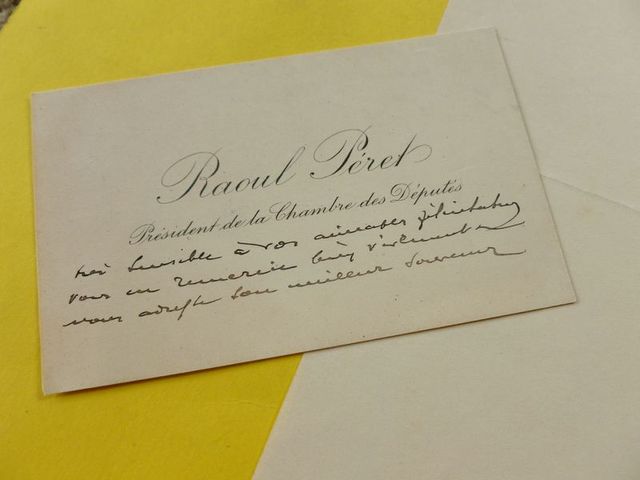 Raoul Péret
Président de la Chambre des Députés
très sensible à vos aimables félicitations
vous en remercie bien vivement et
vous adresse son meilleur souvenir